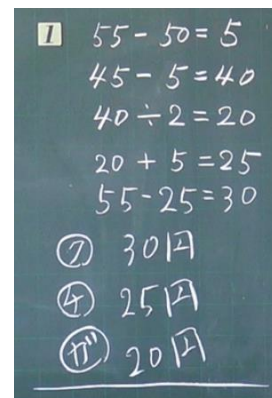 1 55-50=5
45-5=40
40÷2=20
20+5=25
55-25=30
㋐ 30円
㋑ 25円
ガ 20円